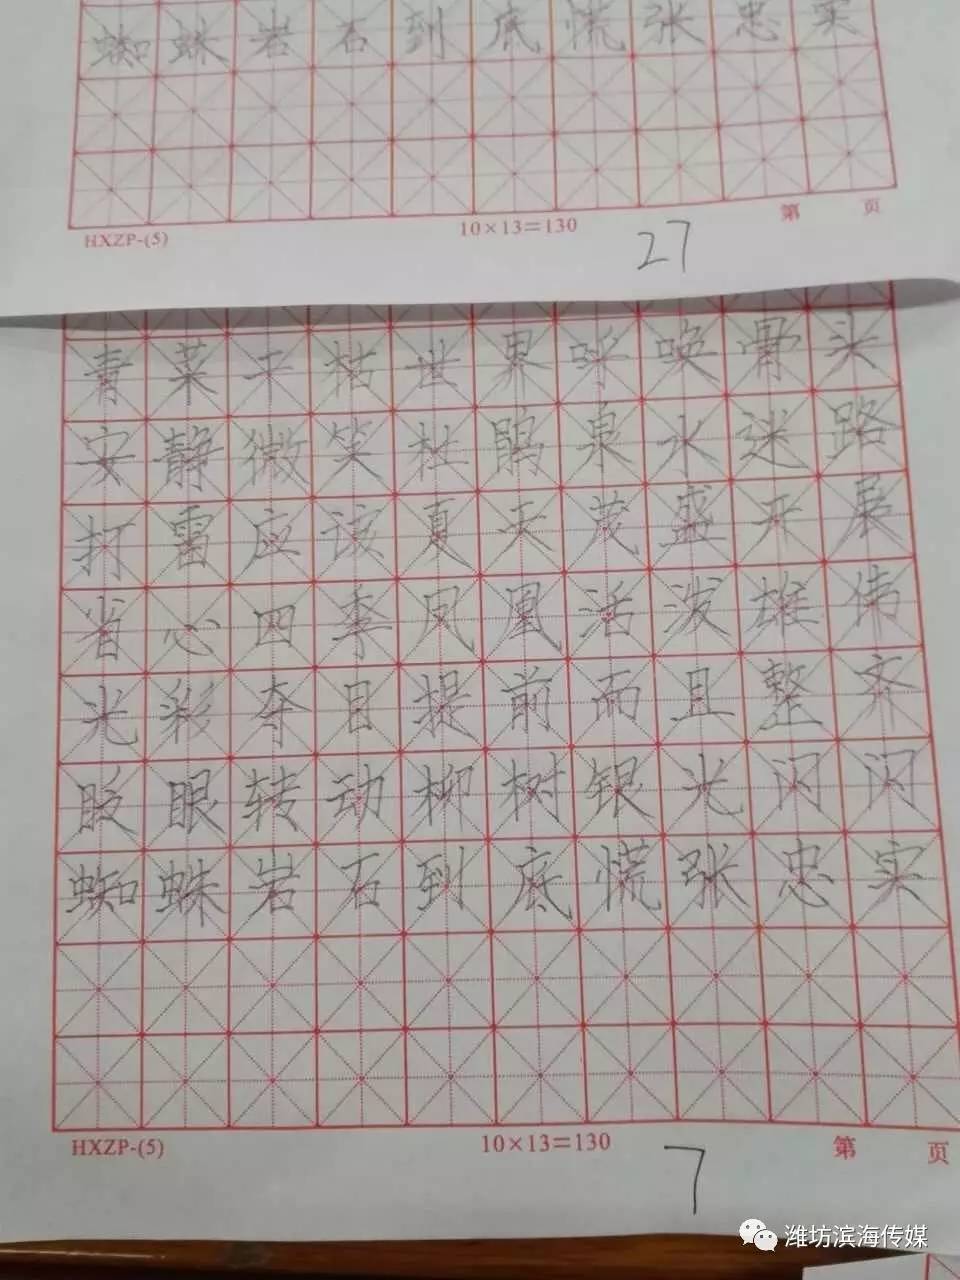 蜘蛛岩石到底慌张忠实
HXZP-(5) 10×13=130 第 页
27
青菜干枯世界呼唤骨头
安静微笑杜鹃泉水迷路
打雷应该夏天茂盛开展
省心四季凤凰活泼雄伟
光彩夺目提前而且整齐
眨眼转动柳树银光闪闪
蜘蛛岩石到底慌张忠实
HXZP-(5) 10×13=130 第 页
7
潍坊滨海传媒